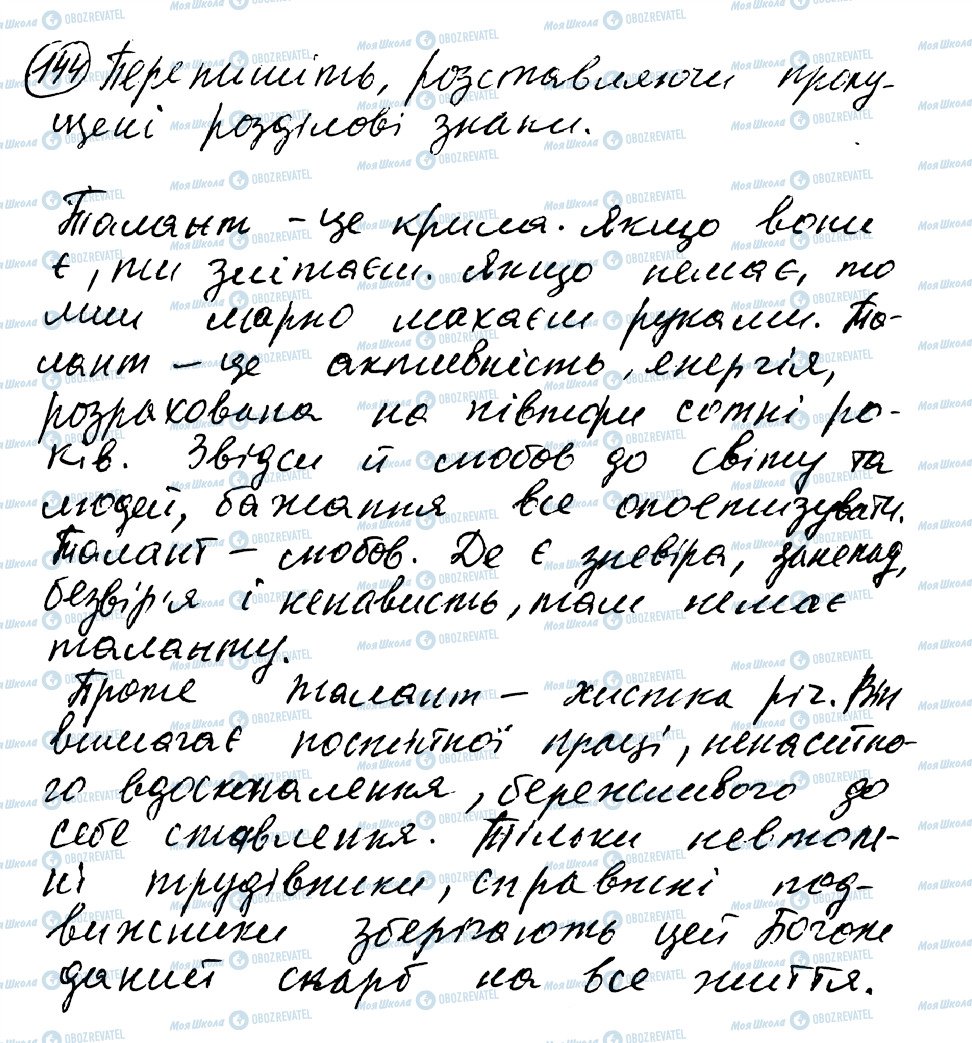 144 Перепишіть, розставляючи пропу-
щені розділові знаки.
Талант – це крила. Якщо вони
є, ти злітаєш. Якщо немає, то
ми марно махаєш руками. Та-
лант – це активність, енергія,
розрахована на півтори сотні ро-
ків. Звідси й любов до світу та
людей, бажання все опоетизувати.
Талант – любов. Де є зневіра, занепад,
безвір'я і ненависть, там немає
таланту.
Проте талант – хистка річ. Він
вимагає постійної праці, ненаситно-
го вдосконалення, бережливого до
себе ставлення. Тільки невтом-
ні трудівники, справжні под-
вижники зберігають цей Богом
даний скарб на все життя.